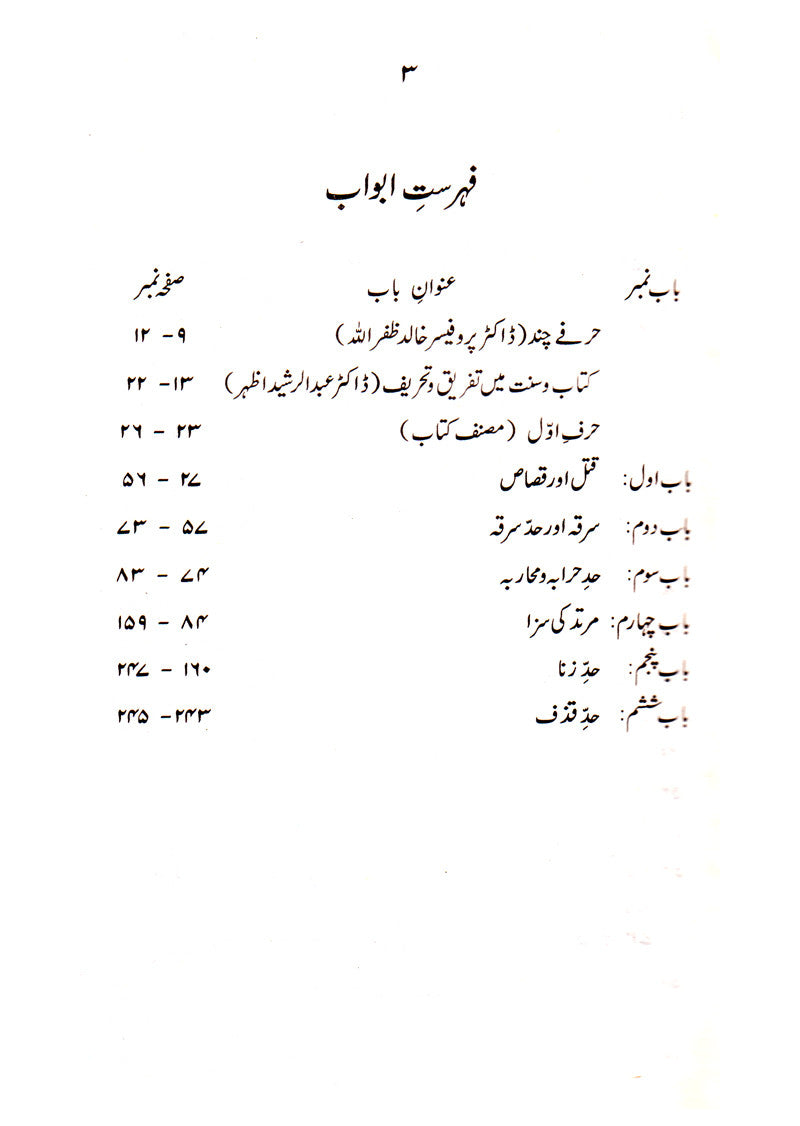 ۳
فہرستِ ابواب
باب نمبر عنوانِ باب صفحہ نمبر
حرفے چند (ڈاکٹر پروفیسر خالد ظفر اللہ) ۹ - ۱۲
کتاب و سنت میں تفریق و تحریف (ڈاکٹر عبدالرشید اظہر) ۱۳ - ۲۲
حرفِ اوّل (مصنف کتاب) ۲۳ - ۲۶
باب اول: قتل اور قصاص ۲۷ - ۵۶
باب دوم: سرقہ اور حدّ سرقہ ۵۷ - ۷۳
باب سوم: حدِ حرابہ و محاربہ ۷۴ - ۸۳
باب چہارم: مرتد کی سزا ۸۴ - ۱۵۹
باب پنجم: حدِّ زنا ۱۶۰ - ۲۴۷
باب ششم: حدِّ قذف ۲۴۳ - ۲۴۵